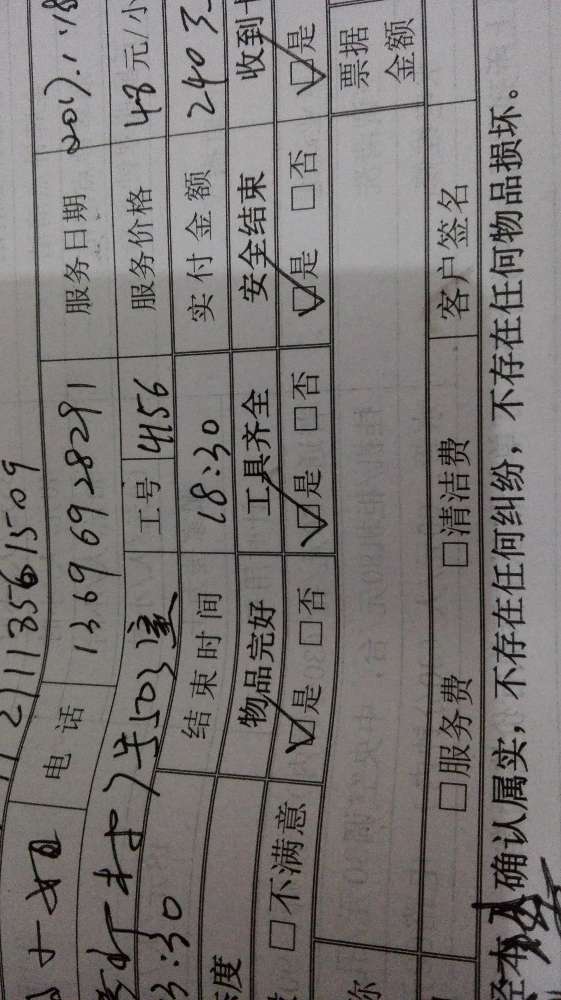 211135661509
电话 13696928291 服务日期 2017.1.18
503室 工号 4156 服务价格 48元/小
3:30 结束时间 18:30 实付金额 240
度 物品完好 工具齐全 安全结束 收到
□不满意 ☑是 □否 ☑是 □否 ☑是 □否 ☑是
称 票据金额
□服务费 □清洁费 客户签名
经本人确认属实，不存在任何纠纷，不存在任何物品损坏。